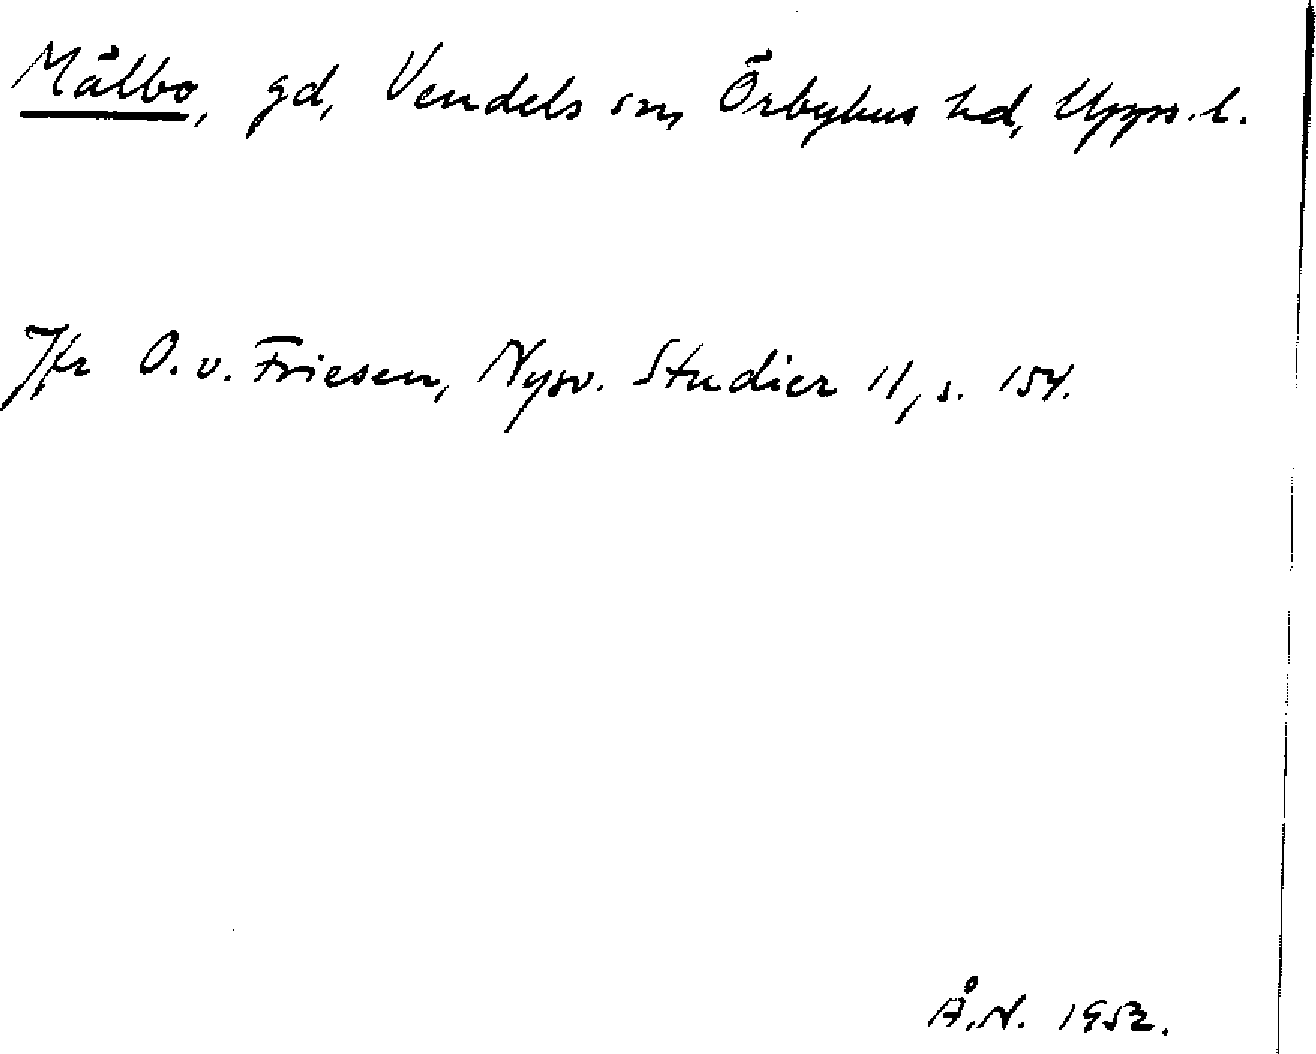 Målbo, gd, Vendels sn, Örbyhus hd, Upps. l.
Jfr O. v. Friesen, Nysv. Studier 11, s. 154.
Å.N. 1952.